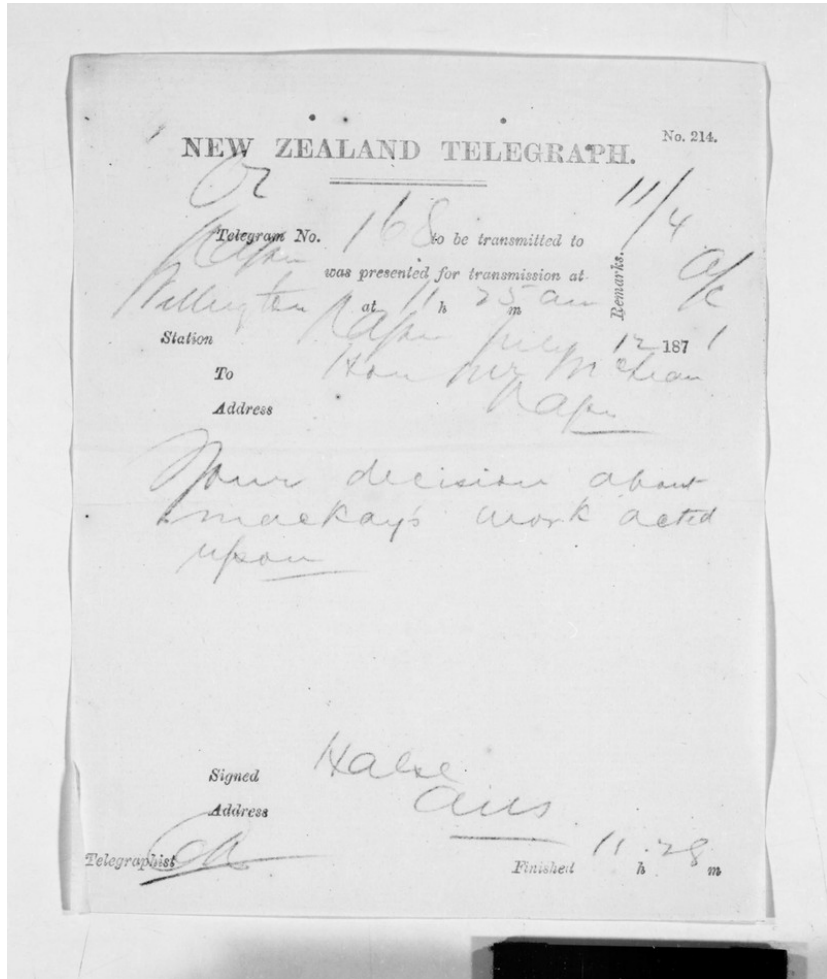 No. 214.
NEW ZEALAND TELEGRAPH.
11/4
Telegram No. 168 to be transmitted to
Napier was presented for transmission at
Remarks.
Wellington at 11 h 25 am m
Station Napier July 12 1871
To Hon Mr McLean
Address Napier
Your decision about
Mackay's work acted
upon
Signed Halse
Address
Telegraphist
Finished 11 h 28 m